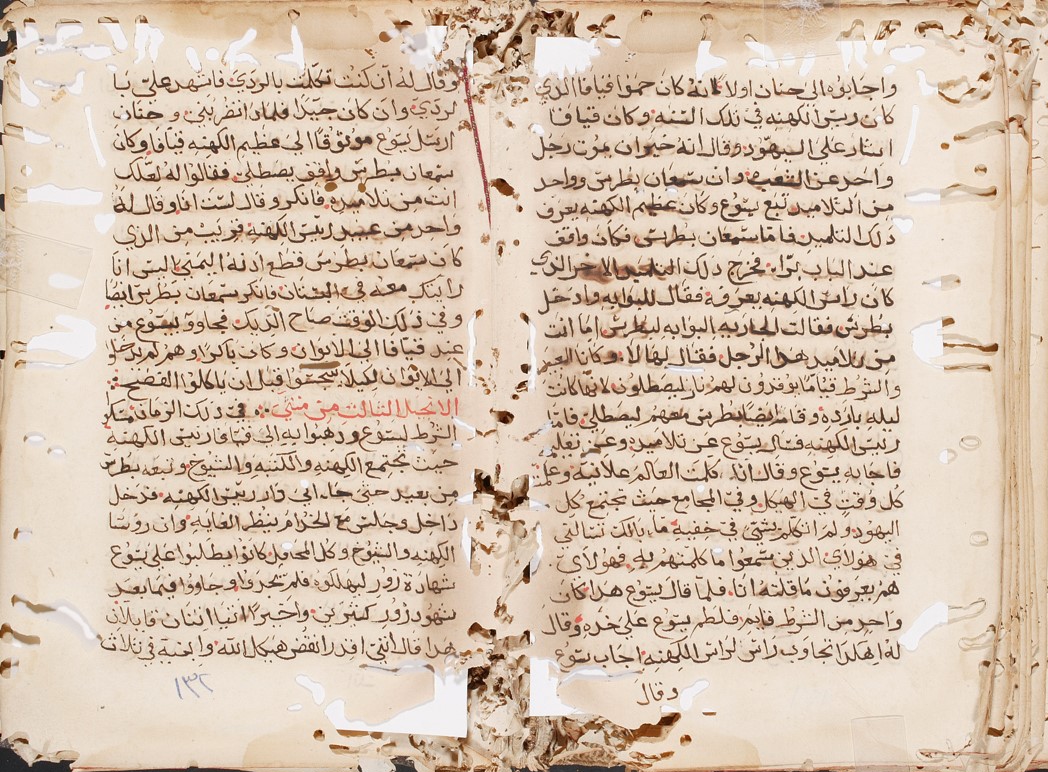 واجابوه الى حنان اولا لانه كان حموا قيافا الذي
كان ريس الكهنه في تلك السنه وكان قيافا
اشار على اليهود وقال انه خير ان يموت رجل
واحد عن الشعب وان سمعان بطرس وواحد
من التلاميد تبع يسوع وكان عظيم الكهنه يعرف
دلك التلميد فاما سمعان بطرس فكان واقف
عند الباب برا فخرج دلك التلميد الاخر الذي
كان راس الكهنه يعرفه فقال للبوابه وادخل
بطرس فقالت الجاريه البوابه لبطرس اما انت
من تلاميد هدا الرجل فقال لها لا وكانا العبيد
والشرط قياما يوقدون لهم نار ليصطلون لانها كانت
ليله بارده وقام ايضا بطرس معهم ليصطلي فاما
ريس الكهنه فسال يسوع عن تلاميده وعن تعليمه
فاجابه يسوع وقال انا كلمت العالم علانيه وعلمت
كل وقت في الهيكل وفي المجامع حيث يجتمع كل
اليهود ولم اتكلم بشي في خفيه ما بالك تسالني
في هولاي الدين سمعوا ما كلمتهم به فهولاي
هم يعرفون ما قلته انا فلما قال يسوع هدا كان
واحد من الشرط قايم فلطم يسوع على خده وقال
له اهكدا تجاوب راس الكهنه اجاب يسوع
وقال
وقال له ان كنت تكلمت بالردي فاشهد علي با
لردي وان كان جيدا فلمادا تضربني وحنان
ارسل يسوع موثوقا الى عظيم الكهنه قيافا وكان
سمعان بطرس واقف يصطلي فقالوا له لعلك
انت من تلاميده فانكر وقال لست انا وقال له
واحد من عبيد ريس الكهنه قريب من الذي
كان سمعان بطرس قطع ادنه اليمنى اليس انا
رايتك معه في البستان فانكر سمعان بطرس ايضا
وفي دلك الوقت صاح الديك فجاوو بيسوع من
عند قيافا الى الايوان وكان باكرا وهم لم يدخلوا
الى الايوان لكيلا يتنجسوا قبل ان ياكلوا الفصح
الانجيل الثالث من متى في دلك الزمان مسكوا
الشرط ليسوع ودهبوا به الى قيافا ريس الكهنه
حيث تجتمع الكهنه والكتبه والشيوخ وتبعه بطرس
من بعيد حتى جاء الى دار ريس الكهنه فدخل
داخل وجلس مع الخدام ينظر الغايه وان روسا
الكهنه والشيوخ وكل المحافل كانوا يطلبوا على يسوع
شهادة زور ليهلكوه فلم يجدوا وجاووا فيما بعد
شهود زور كتيرين واخيرا اتيا اتنان قايلان
هدا قال انني اقدر انقض هيكل الله وابنيه في ثلاثة
١٣٢